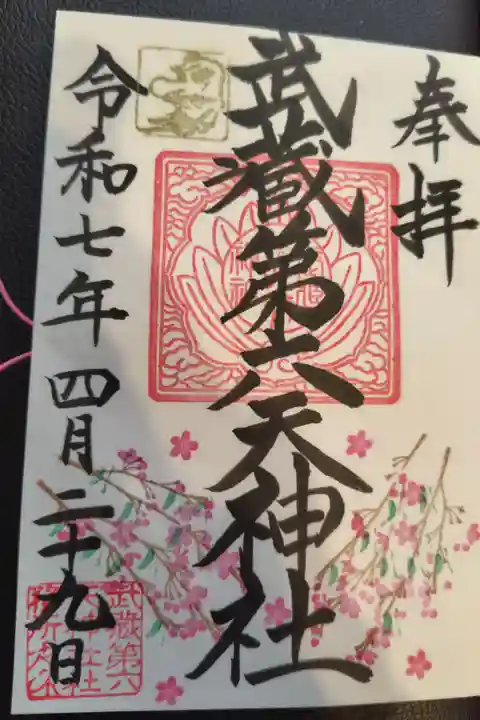 奉拝
武蔵第六天神社
令和七年四月二十九日
武蔵第六
天神社